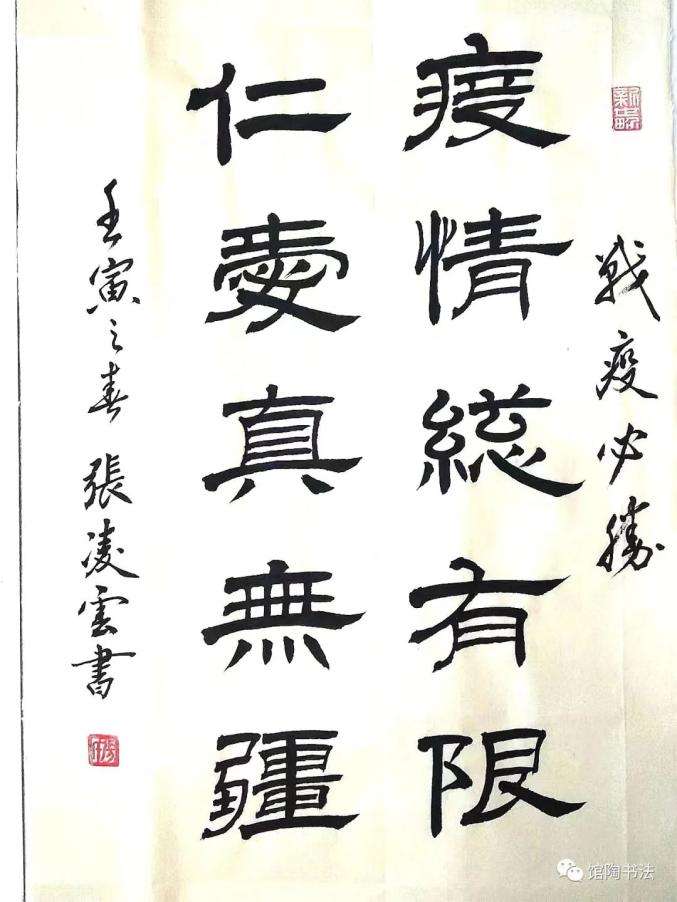 戰疫必勝
疫情総有限
仁愛真無疆
壬寅之春 張凌雲書
馆陶书法